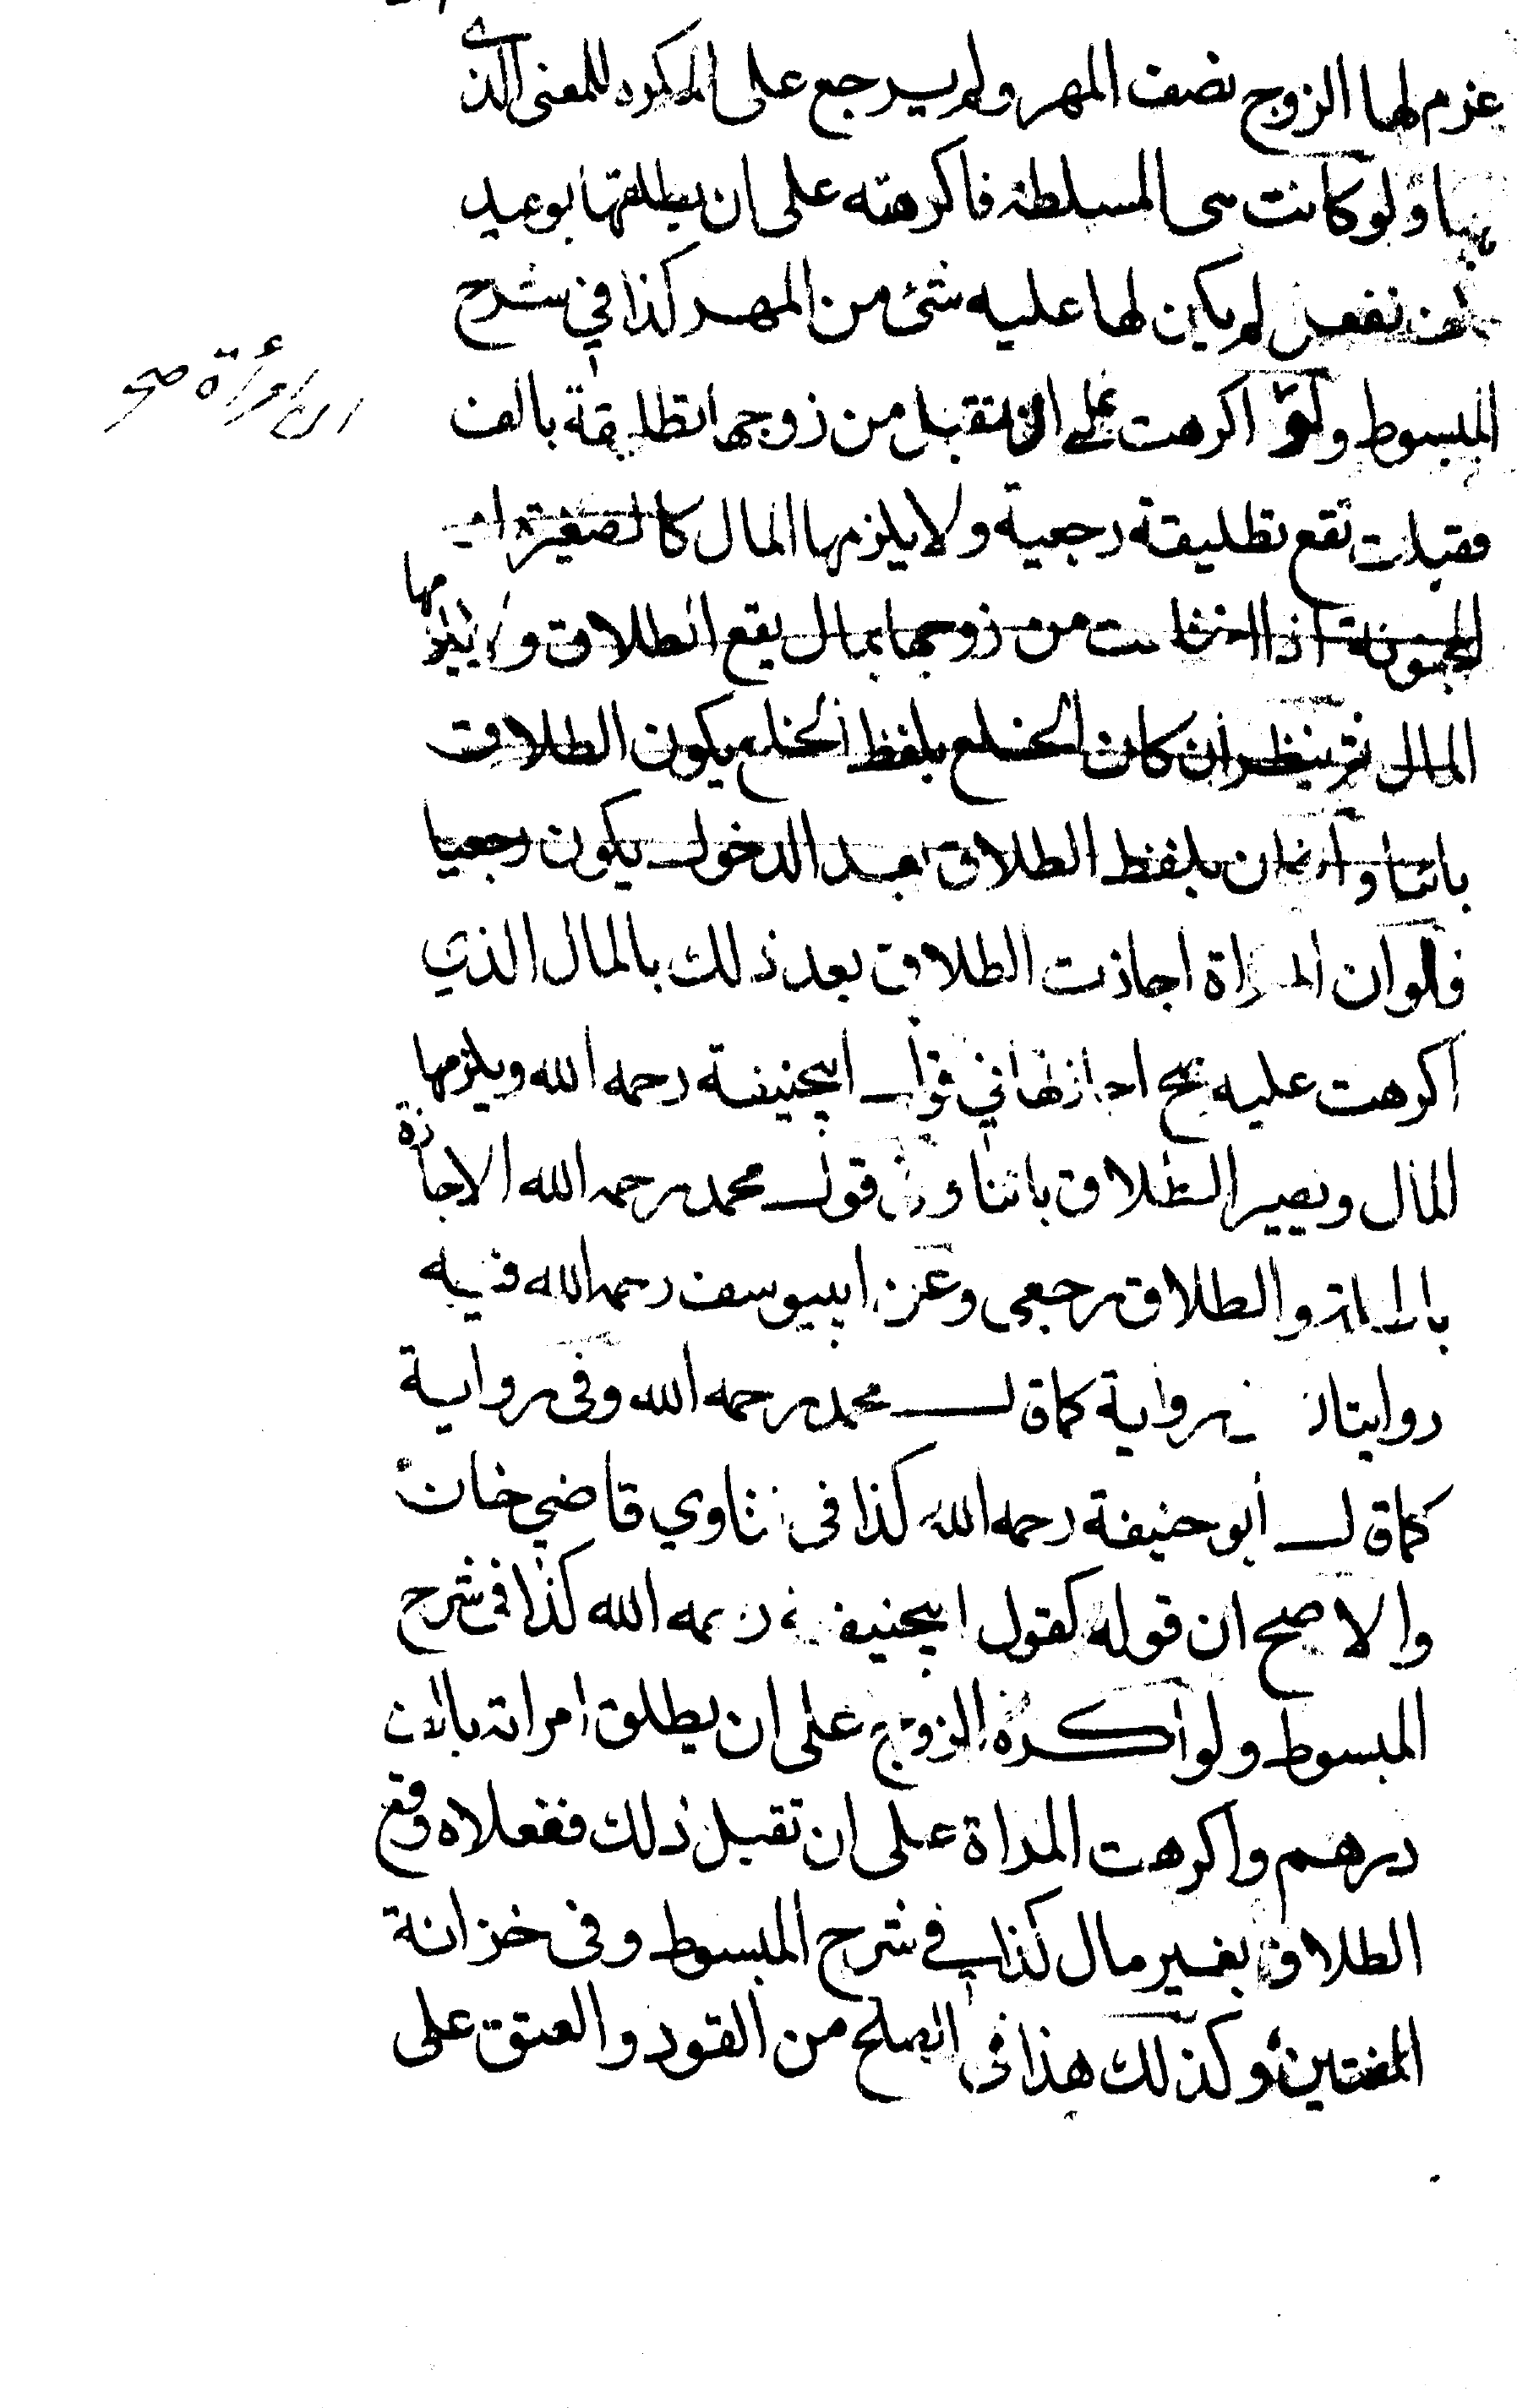 غرم لها الزوج نصف المهر ولم يرجع على المكره للمعنى الذي
بينا ولو كانت هى المسلطة فاكرهته على ان يطلقها بوعيد
تلف ففعل لم يكن لها عليه شئ من المهر كذا في شرح
المبسوط ولو اكرهت على ان تقبل من زوجها تطليقة بالف
ان امرأة صح
فقبلت تقع تطليقة رجعية ولا يلزمها المال كالصغيرة
المجنونة اذا اختلعت من زوجها بمال يقع الطلاق ولا يلزمها
المال ثم ينظر ان كان الخلع بلفظ الخلع يكون الطلاق
بائنا وان كان بلفظ الطلاق بعد الدخول يكون رجعيا
فلو ان المراة اجازت الطلاق بعد ذلك بالمال الذي
اكرهت عليه صح اجازتها في قول ابيحنيفة رحمه الله ويلزمها
المال ويصير الطلاق بائنا وفى قول محمد رحمه الله الاجازة
باطلة والطلاق رجعى وعن ابييوسف رحمه الله فيه
روايتان فى رواية كما قال محمد رحمه الله وفى رواية
كما قال أبو حنيفة رحمه الله كذا فى فتاوي قاضي خان
والاصح ان قوله كقول ابيحنيفة رحمه الله كذا فى شرح
المبسوط ولو أكره الزوج على ان يطلق امراته بالف
درهم واكرهت المراة على ان تقبل ذلك ففعلاه وقع
الطلاق بغير مال كذا في شرح المبسوط وفى خزانة
المفتين وكذلك هذا فى الصلح من القود والعتق على